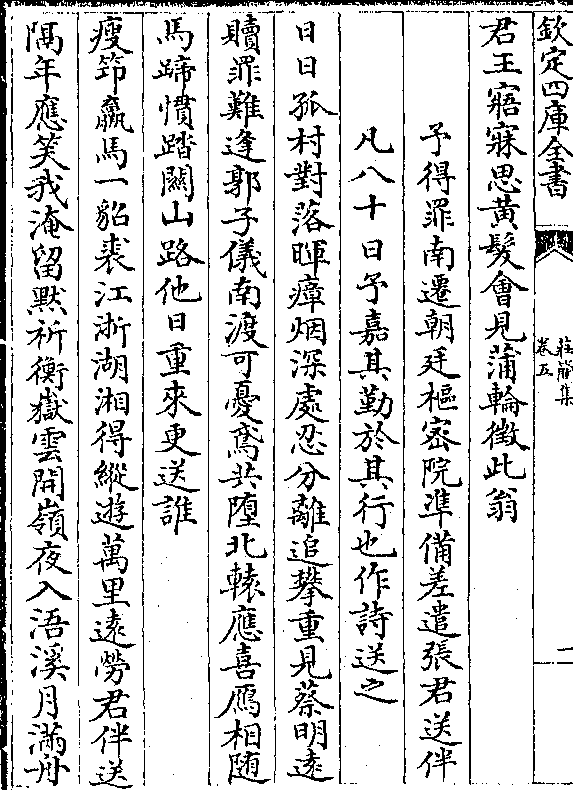 欽定四庫全書
莊簡集
卷五
君王寤寐思黃髮會見蒲輪徵此翁
予得罪南遷朝廷樞宻院凖備差遣張君送伴
凡八十日予嘉其勤於其行也作詩送之
日日孤村對落暉瘴烟深處忍分離追攀重見蔡明逺
贖罪難逢郭子儀南渡可憂鳶共墮北轅應喜鴈相随
馬蹄慣踏闗山路他日重來更送誰
瘦笻羸馬一貂裘江浙湖湘得縱遊萬里逺勞君伴送
隔年應笑我淹留黙祈衡嶽雲開嶺夜入浯溪月滿舟